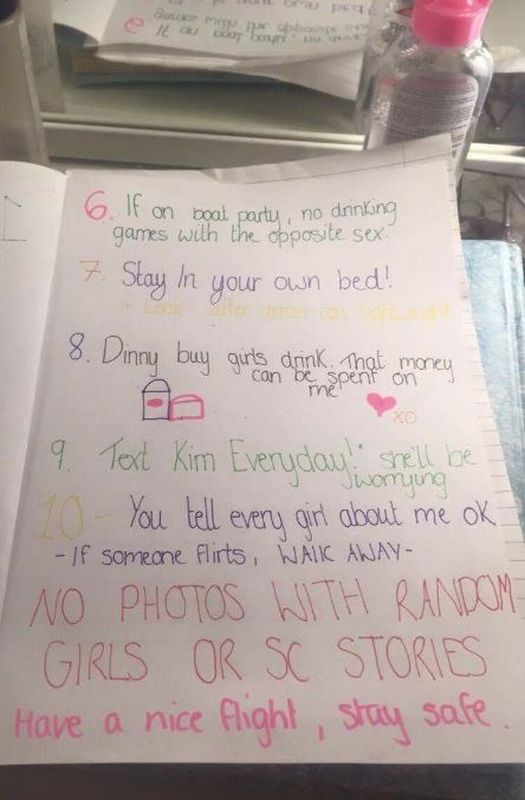 6. If on boat party, no drinking
games with the opposite sex.
7. Stay In your own bed!
+ Look after
8. Dinny buy girls drink. That money
can be spent on
me
XO
9. Text Kim Everyday! she'll be
worrying
10 - You tell every girl about me OK
- If someone flirts, WALK AWAY -
NO PHOTOS WITH RANDOM
GIRLS OR SC STORIES
Have a nice flight, stay safe.